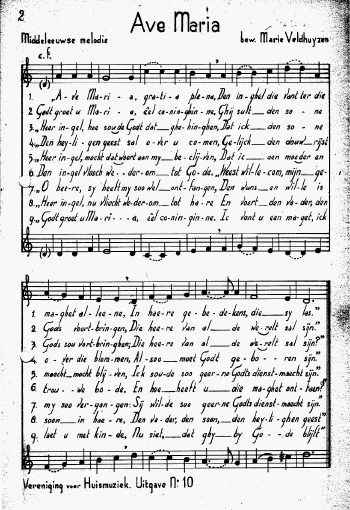 2
Ave Maria
Middeleeuwse melodie
bew. Marie Veldhuyzen
c.f.
1. „A - ve Ma - ri - a, gra - ti - a ple - na, Den in - ghel die vant ter die
2 Godt groet u Ma - ri - a, eel co - nin - ghin - ne, Ghij sult den so - ne
3. „Heer in - gel, hoe sou de Godt dat ghe - hin - ghen, Dat ick den so - ne
4. „Den hey - li - gen geest sal o - ver u co - men, Ge - lijck den douw
5. „Heer in - gel, mocht dat voort aen my be - clij - ven, Dat ic een moeder an
6. Den in - gel vloech we - der - om tot Go - de, „Heest wil - le - com, mijn ge -
7. „O hee - re, sy heeft my soo wel ont - fan - gen, Den uwen wil - le is
8. „Heer in - gel, nu vliecht we - der - om tot ha - re En voert den va - der, den
9. „Godt groet u Ma - ri - a, eel co - nin - gin - ne. Ic vant u een ma - get, ick
1. ma - ghet al - lee - ne, In hae - re ge - be - de - kens, die sy las."
2. Gods voort - brin - gen, Die hee - re van al de we - relt sal sijn."
3. Gods sou vort - brin - ghen, Die hee - re van al de we - relt sal sijn?"
4. o - ver die blom - men, Al - soo moet Godt ge - bo - ren sijn."
5. maecht blij - ven, Ick sou - de soo geer - ne Godts dienst - maecht sijn."
6. trou - we bo - de. En hoe heeft u die ma - ghet ont - haen?"
7. my soo ver - gan - gen: Sij wil - de soo geer - ne Godts dienst - maecht sijn."
8. soon in hee - re, Den va - der, den soon, den hey - li - ghen geest"
9. laet u met kin - de, Nu siet, dat ghy by Go - de blijft"
Vereniging voor Huismuziek. Uitgave No 10